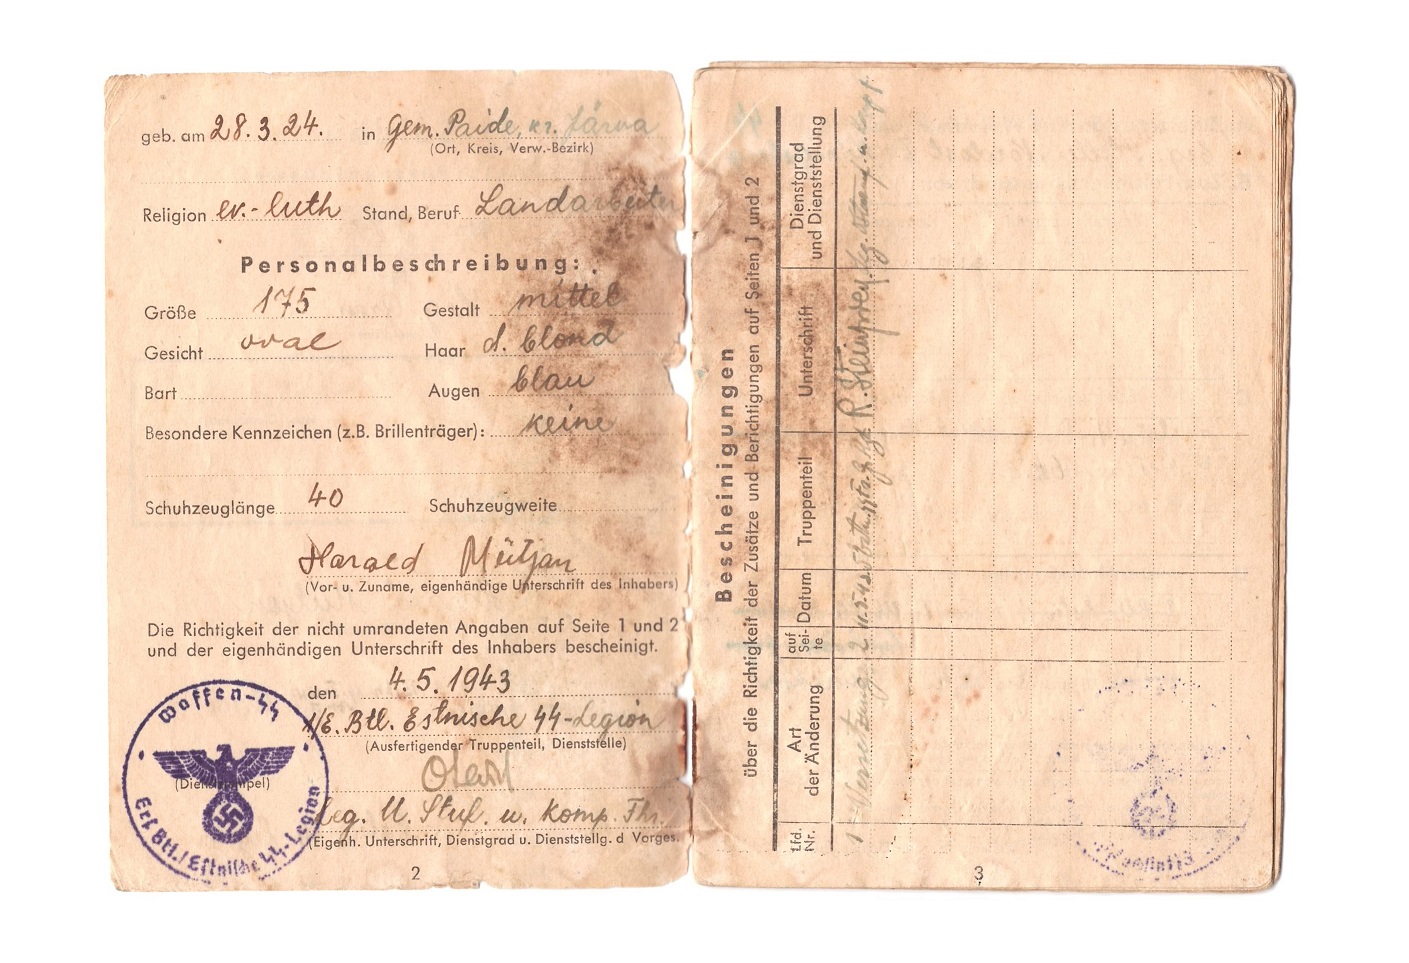 geb. am 28.3.24. in Gem. Paide, kr. Järva
(Ort, Kreis, Verw.-Bezirk)
Religion ev.-luth Stand, Beruf Landarbeiter
Personalbeschreibung:
Größe 175 Gestalt mittel
Gesicht oval Haar d. blond
Bart Augen blau
Besondere Kennzeichen (z.B. Brillenträger): keine
Schuhzeuglänge 40 Schuhzeugweite
Harald
(Vor- u. Zuname, eigenhändige Unterschrift des Inhabers)
Die Richtigkeit der nicht umrandeten Angaben auf Seite 1 und 2
und der eigenhändigen Unterschrift des Inhabers bescheinigt.
den 4.5.1943
/E. Btl. Estnische SS-Legion
(Ausfertigender Truppenteil, Dienststelle)
(Dienststempel)
Leg. U. Stuf. u. Komp. Fhr.
(Eigenh. Unterschrift, Dienstgrad u. Dienststellg. d Vorges.
Waffen-SS
Ers. Btl./Estnische SS-Legion
2
Bescheinigungen
über die Richtigkeit der Zusätze und Berichtigungen auf Seiten 1 und 2
Lfd. Nr.
Art der Änderung
auf Sei- te
Datum
Truppenteil
Unterschrift
Dienstgrad und Dienststellung
1 Versetzung 2
3